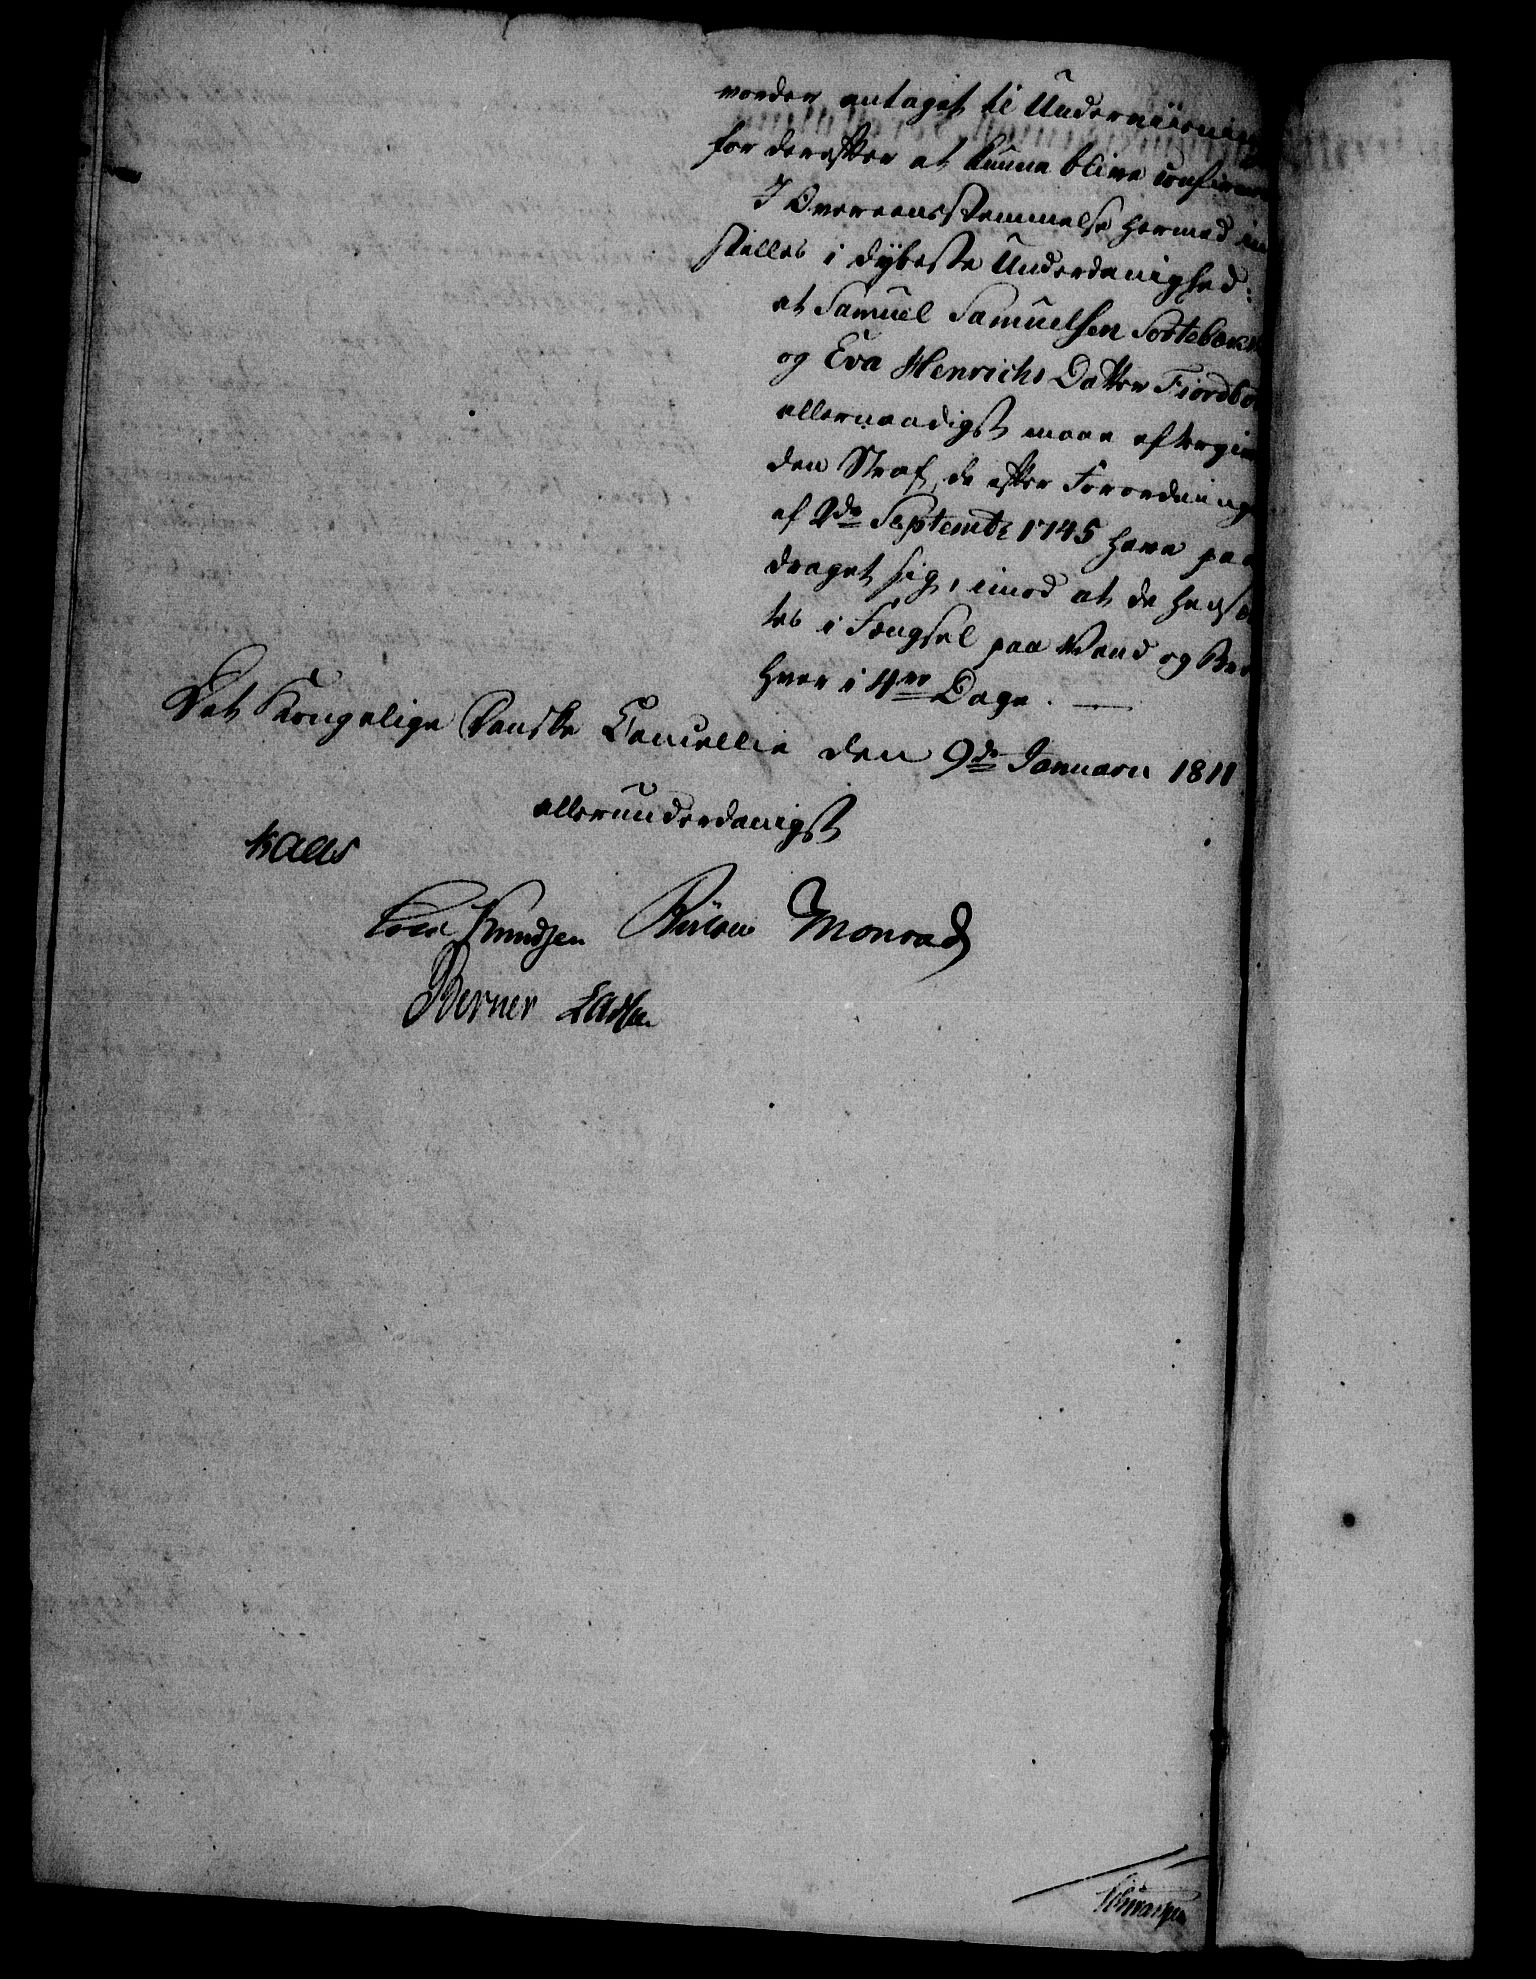 vorder antaget til Underviisning
for derefter at kunne blive confirme
I Overeensstemmelse hermed ind
stilles i dybeste Underdanighed:
at Samuel Samuelsen Sortebærs
og Eva Henrichs Datter Fiordbo
allernaadigst maae eftergiv
den Straf, de efter Forordning
af 2de Septembr 1745 have paa
draget sig, imod at de hensæt
tes i Fængsel paa Vand og Brø
hver i 4re Dage.
Det Kongelige Danske Cancellie den 9de Januarii 1811
allerunderdanigst
Kaas
Knudsen Bülow Monrad
Berner Lassen